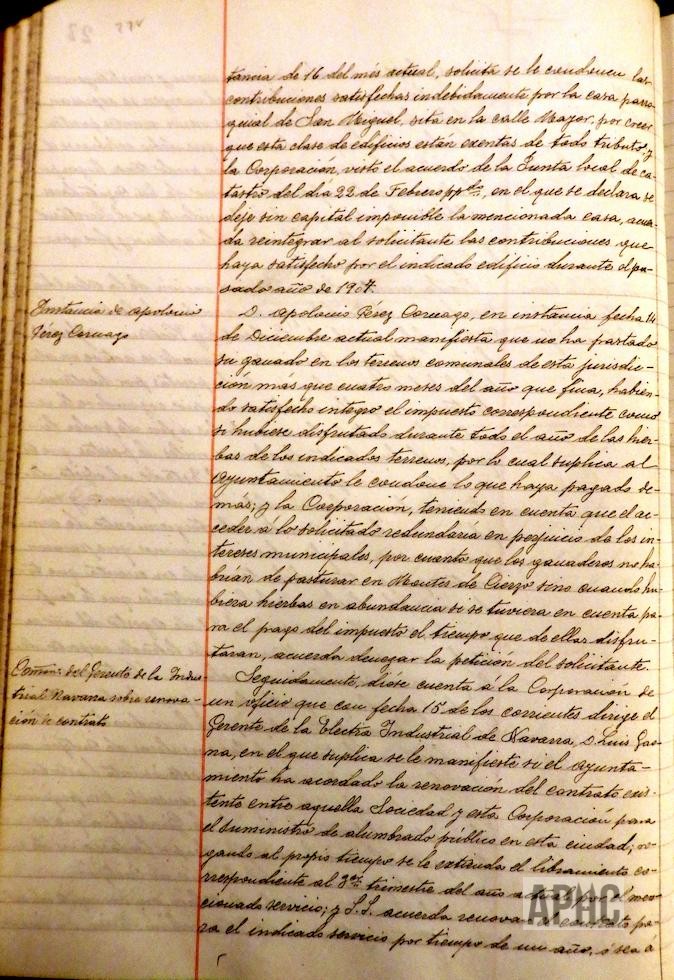 tancia de 16 del mes actual, solicita se le condonen las
contribuciones satisfechas indebidamente por la casa parro
quial de San Miguel, sita en la calle Mayor, por creer
que esta clase de edificios están exentas de todo tributo, y
la Corporación, visto el acuerdo de la Junta local de ca-
tastro del día 22 de Febrero ppdo, en el que se declara se
deje sin capital imponible la mencionada casa, acuer-
da reintegrar al solicitante las contribuciones que
haya satisfecho por el indicado edificio durante el pa-
sado año de 1904.
Instancia de Apolonio
Pérez Coruago
D. Apolonio Pérez Coruago, en instancia fecha 14
de Diciembre actual manifiesta que no ha pastado
su ganado en los terrenos comunales de esta jurisdic-
ción más que cuatro meses del año que fina, habien-
do satisfecho integro el impuesto correspondiente como
si hubiese disfrutado durante todo el año de las hier-
bas de los indicados terrenos, por lo cual suplica al
Ayuntamiento le condone lo que haya pagado de-
más; y la Corporación, teniendo en cuenta que el ac-
ceder á lo solicitado redundaría en perjuicio de los in-
tereses municipales, por cuanto que los ganaderos no ha-
brían de pasturar en Montes de Cierzo sino cuando hu
biera hierbas en abundancia si se tuviera en cuenta pa-
ra el pago del impuesto el tiempo que de ellas disfru-
taran, acuerda denegar la petición del solicitante.
del Gerente de la Indus
trial Navarra sobre renova-
ción de contrato
Seguidamente, dióse cuenta á la Corporación de
un oficio que con fecha 15 de los corrientes dirige el
Gerente de la Electra Industrial de Navarra, D. Luis
na, en el que suplica se le manifieste si el Ayunta-
miento ha acordado la renovación del contrato exis-
tente entre aquella Sociedad y esta Corporación para
el suministro de alumbrado público en esta ciudad; ro
gando al propio tiempo se le extienda el libramiento co-
rrespondiente al 3er trimestre del año actual por el men
cionado servicio; y S.S. acuerda renovar el contrato pa-
ra el indicado servicio por tiempo de un año, ó sea a
APHC